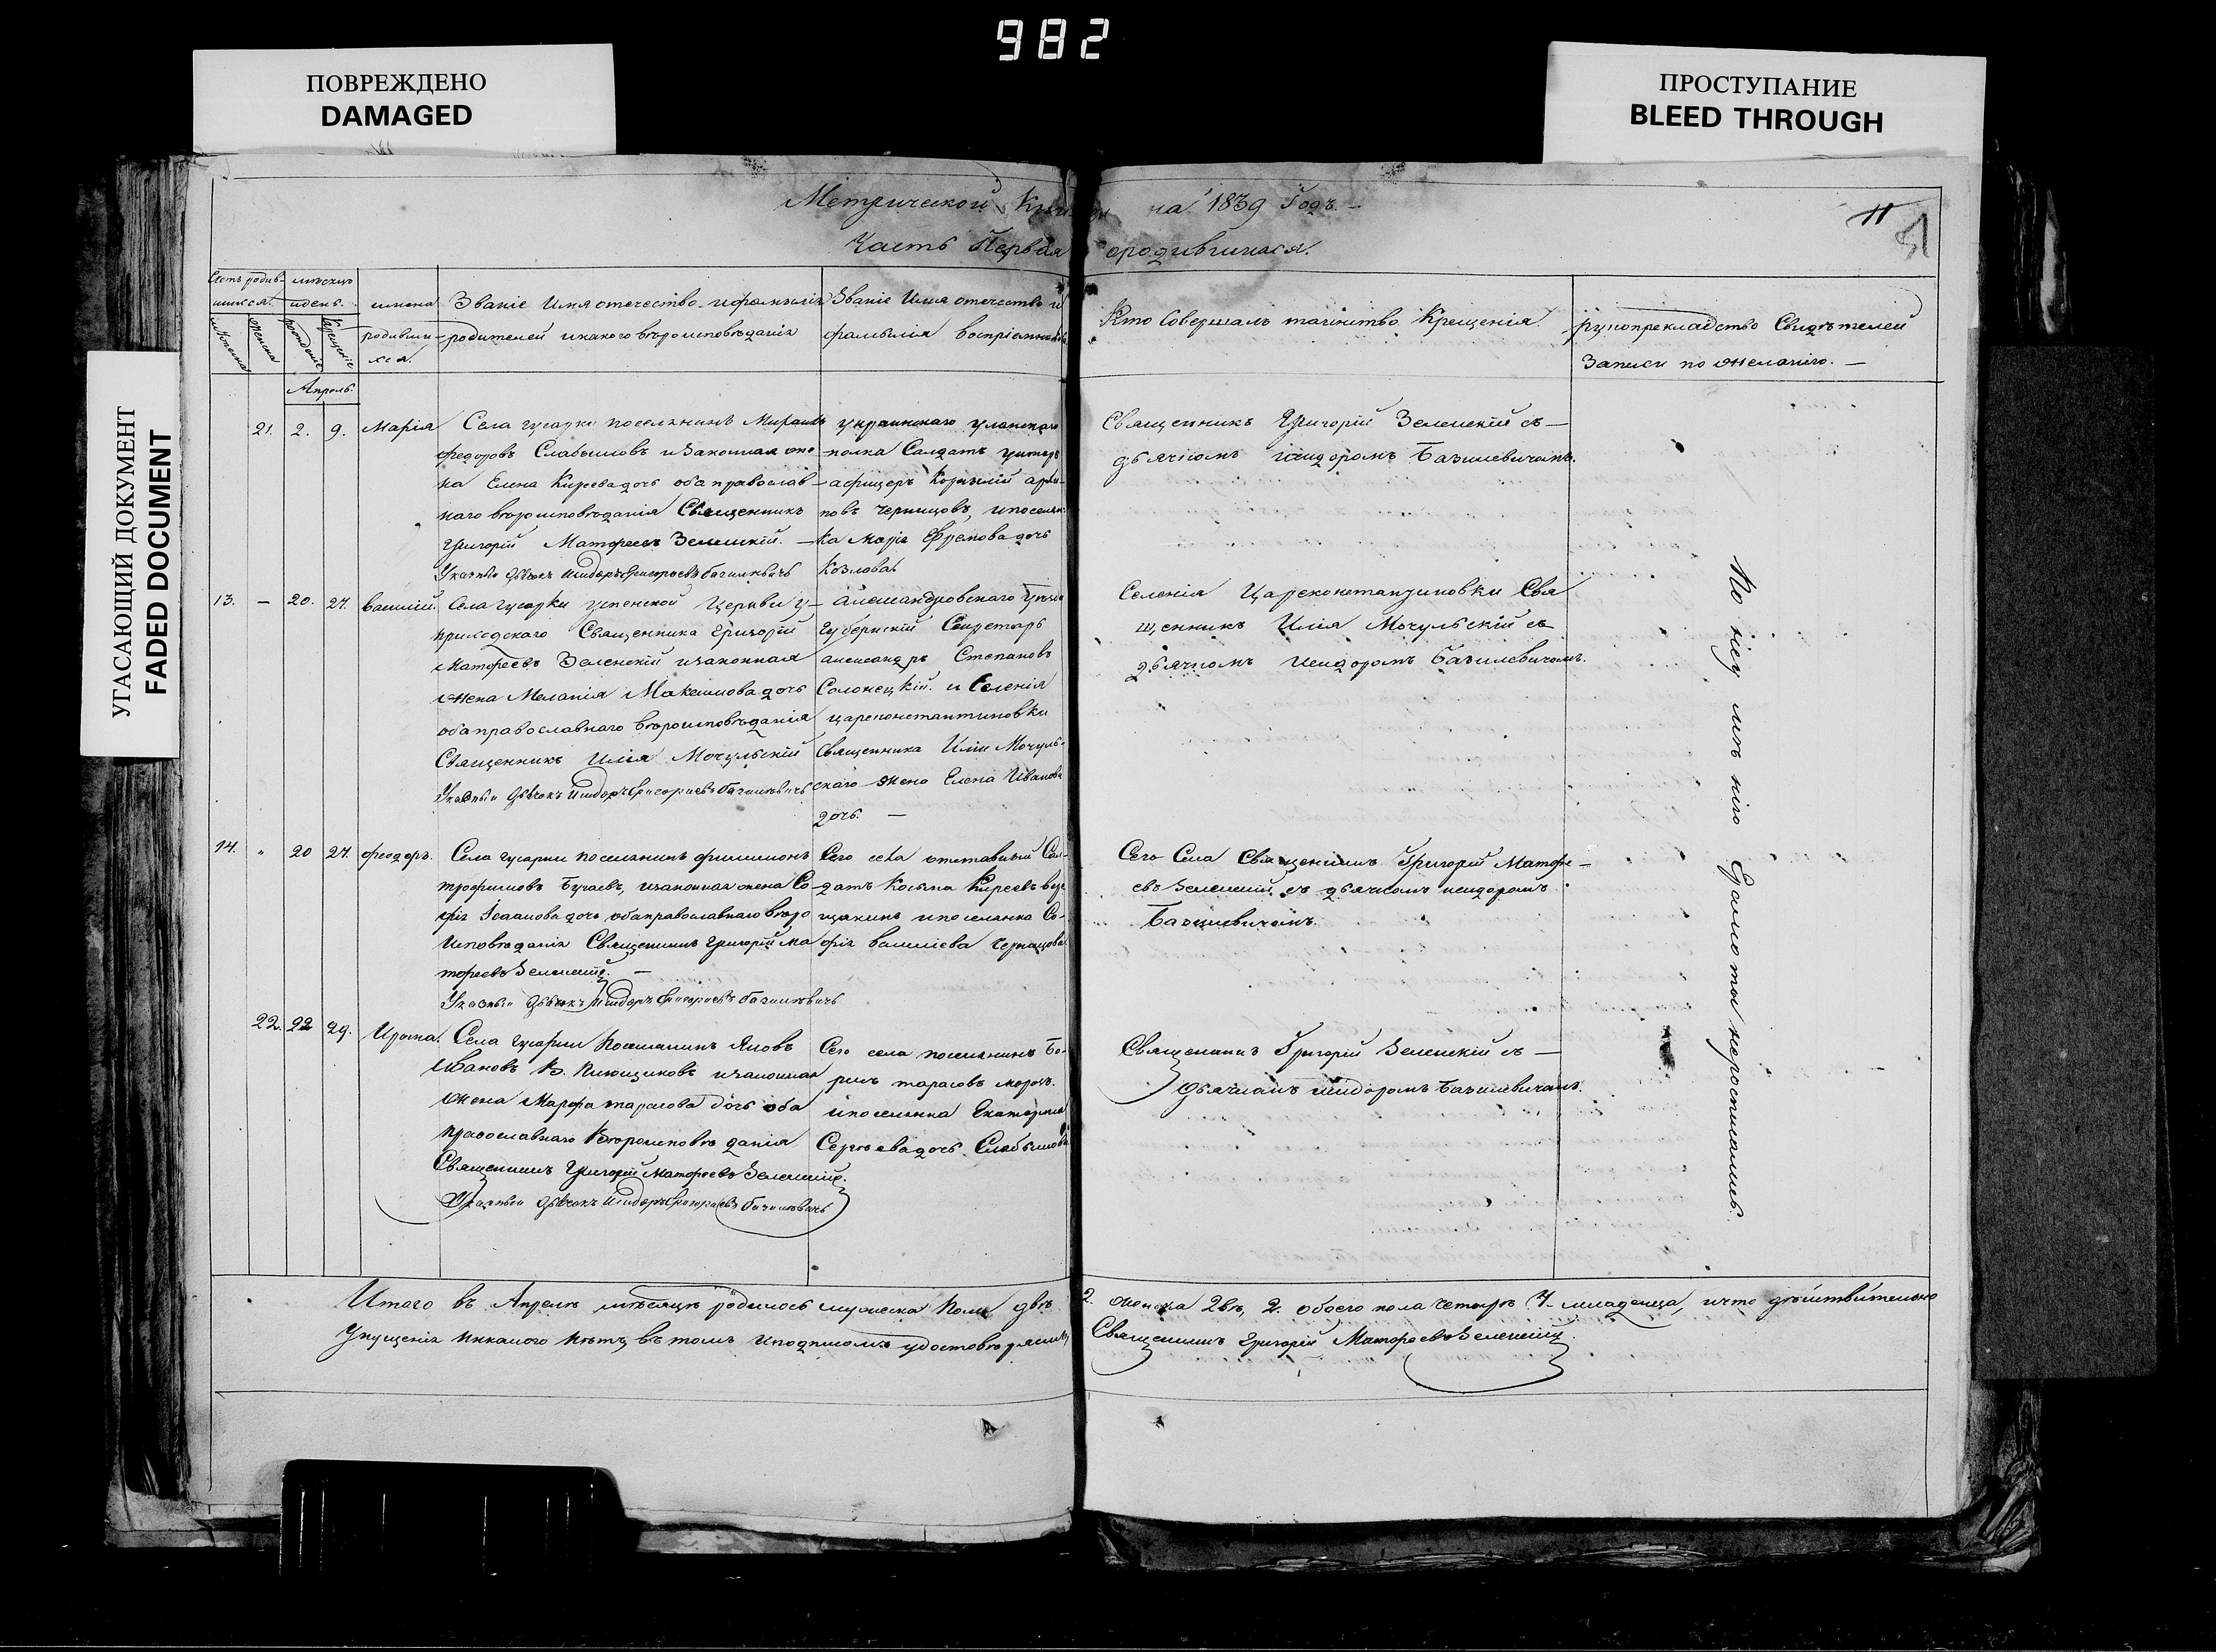 982
ПОВРЕЖДЕНО
DAMAGED
ПРОСТУПАНИЕ
BLEED THROUGH
УГАСАЮЩИЙ ДОКУМЕНТ
FADED DOCUMENT
Метрической Книги на 1839 Годъ. —
Часть Первая ородившихся.
11
мѣсяцъ
идень.
имена
родивши-
хся.
Званіе Имя отечество ифамилія
родителей икакого вѣроисповѣданія
Званіе Имя отечество и
фамилія воспріемниковъ
Кто Совершалъ таинство Крещенія.
рукоприкладство Свидѣтелей
Записи по желанію. —
Апрель.
21. 2. 9. Марія
Села гусарки поселянинъ Михаилъ
федоровъ Слабышовъ изаконная же
на Елена Киреева дочь оба православ-
наго вѣроисповѣданія Священникъ
Григорій Матфеевъ Зеленскій. —
Указный Дьячокъ Исидоръ Григорьевъ базилевичь
украинскаго уланскаго
полка Салдатъ унтеръ
афицеръ Корнилій архи-
повъ Чернцовъ, ипоселян-
ка Марія Ефремова дочь
Козлова
Священникъ Григорій Зеленскій съ —
дьячкомъ исидоромъ Базилевичомъ.
13. — 20. 27. Василій.
Села гусарки успенской Церкви у-
приходскаго Священника Григорій
Матфеевъ Зеленскій изаконная
жена Меланія Максимова дочь
оба православнаго вѣроисповѣданія
Священникъ Илія Мочульскій
Указный Дьячокъ Исидоръ Григорьевъ базилевичь
Александровскаго уѣзда
Губернскій Секретарь
александръ Степановъ
Солонецкій. и Селенія
цареконстантиновки
Священника Иліи Мочуль-
скаго жена Елена Иванова
дочь. —
Селенія Цареконстантиновки Свя
щенникъ Илія Мочульскій съ
дьячкомъ Исидоромъ Базилевичомъ.
14. „ 20 27. феодоръ.
Села гусарки поселянинъ филимонъ
трофимовъ Бугаевъ, изаконная жена Со-
фія Исаакова дочь оба православнаго вѣро
исповѣданія Священникъ Григорій Ма
тфеевъ Зеленскій. —
Указный Дьячокъ Исидоръ Григорьевъ базилевичь
Сего села отставный Сал-
датъ Косьма Киреевъ
ипоселянка Со-
фія василіева Чернцова
Сего Села Священникъ Григорій Матфе-
евъ Зеленскій съ дьячкомъ исидоромъ
Базилевичомъ.
22. 22 29. Ирина.
Села гусарки Поселянинъ Яковъ
Ивановъ изаконная
жена Марфа тарасова дочь оба
православнаго Вѣроисповѣданія
Священникъ Григорій Матфеевъ Зеленскій.
Указный Дьячокъ Исидоръ Григорьевъ базилевичь
Сего села поселянинъ Бо-
рисъ тарасовъ морозъ.
ипоселянка Екатерина
Сергѣева дочь Слабышова
Священникъ Григорій Зеленскій съ —
дьячкомъ исидоромъ Базилевичомъ.
Итого въ Апрелѣ мѣсяцѣ родилось мужеска пола двѣ 2. женска 2вѣ, 2. обоего пола четыре 4 младенца, ичто дѣйствительно
Упущенія никакого нѣтъ, въ томъ иподписомъ удостовѣряемъ Священникъ Григорій Матфеевъ Зеленскій